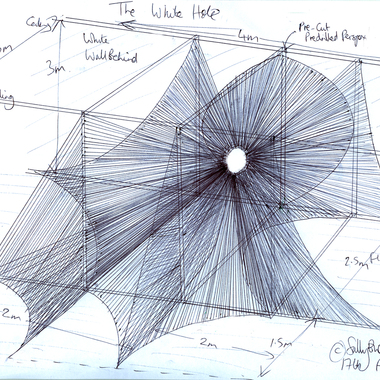 The White Hole
Ceiling
White
Wall Behind
4m
Pre-Cut
Predrilled Perspex
3m
2.5m
2m
2m
1.5m
©